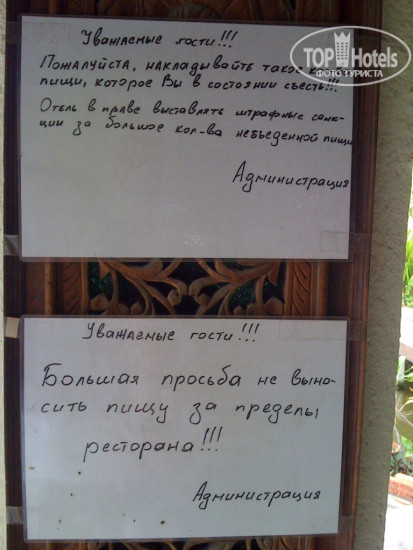 TOP Hotels
ФОТО ТУРИСТА
Уважаемые гости!!!
Пожалуйста, накладывайте такое
пищи, которое Вы в состоянии съесть!!!
Отель в праве выставлять штрафные санк-
ции за большое кол-ва несъеденной пищи
Администрация
Уважаемые гости!!!
Большая просьба не выно-
сить пищу за пределы
ресторана!!!
Администрация